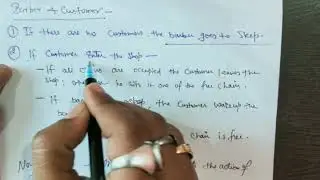 Barber & Customer -
① If there are no Customers the barber goes to Sleep.
② If Customer Enter the Shop —
- If all are occupied the Customer leaves the
shop, he sits in one of the free chairs.
- If the Customer wakeup the
chair is free.
the action of